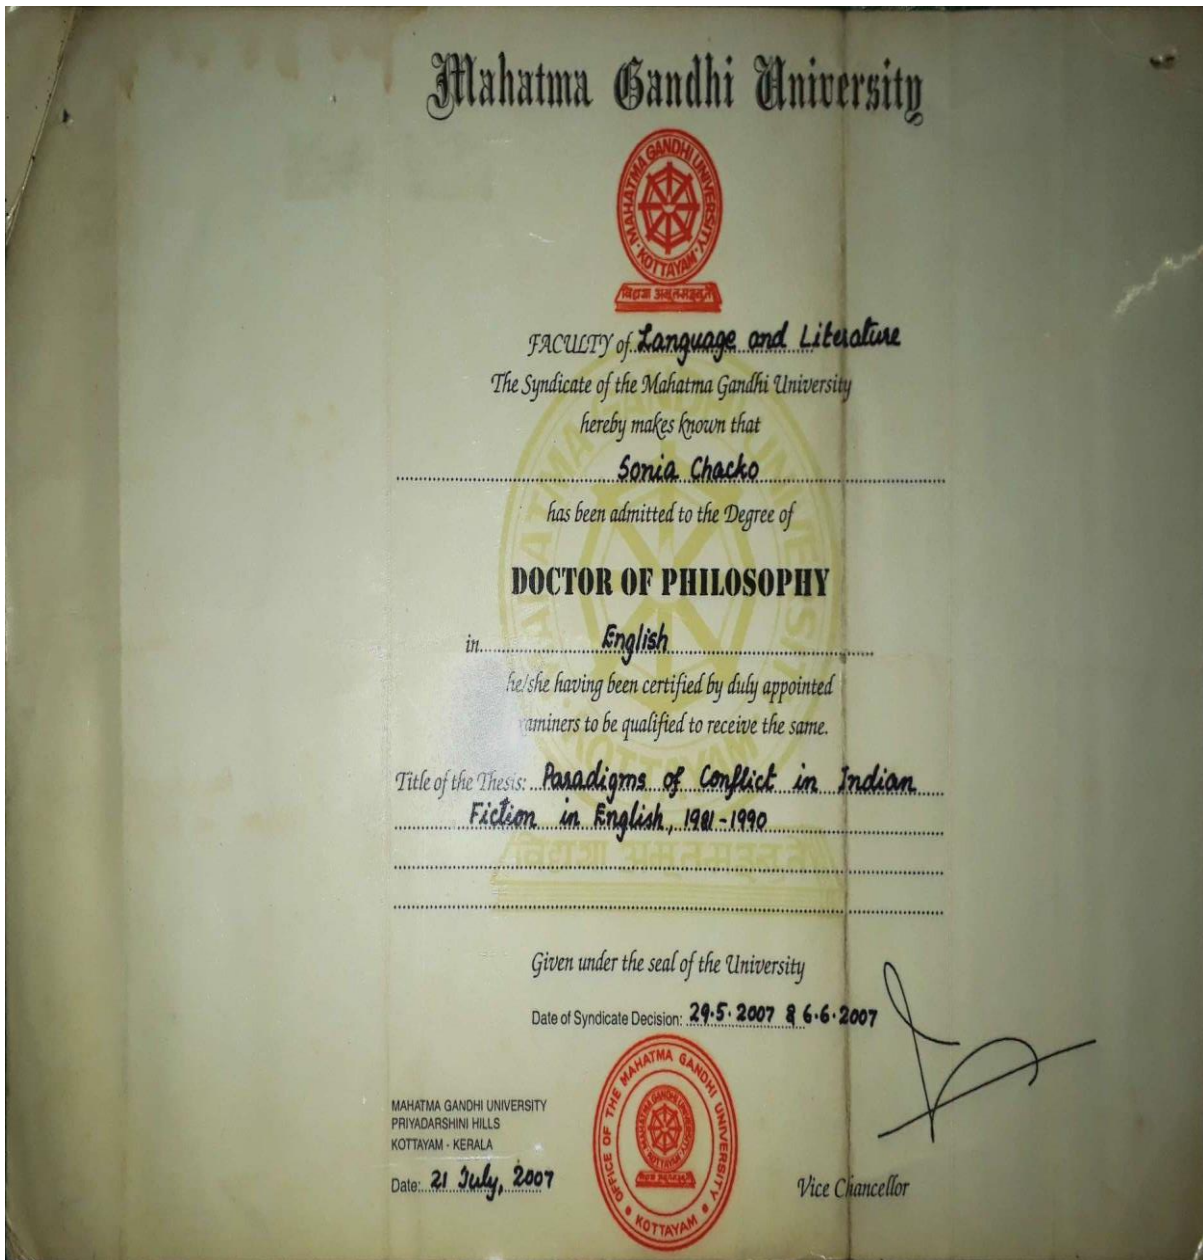 Mahatma Gandhi University
MAHATMA GANDHI UNIVERSITY
KOTTAYAM
विद्यया अमृतमश्नुते
FACULTY of Language and Literature
The Syndicate of the Mahatma Gandhi University
hereby makes known that
Sonia Chacko
has been admitted to the Degree of
DOCTOR OF PHILOSOPHY
in English
he/she having been certified by duly appointed
aminers to be qualified to receive the same.
Title of the Thesis: Paradigms of Conflict in Indian
Fiction in English, 1981-1990
Given under the seal of the University
Date of Syndicate Decision: 29.5.2007 & 6.6.2007
MAHATMA GANDHI UNIVERSITY
PRIYADARSHINI HILLS
KOTTAYAM - KERALA
Date: 21 July, 2007
OFFICE OF THE MAHATMA GANDHI UNIVERSITY
KOTTAYAM
Vice Chancellor